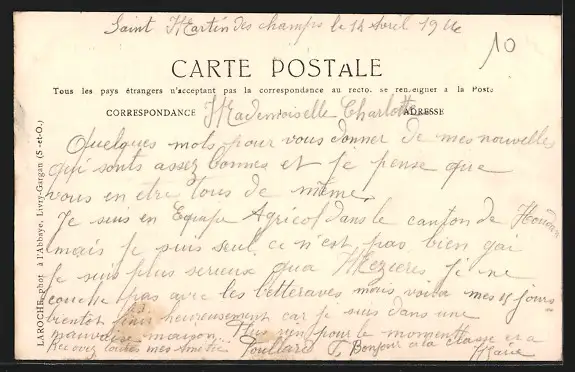 Saint Martin des champs le 14 Avril 19
10
CARTE POSTALE
Tous les pays étrangers n'acceptant pas la correspondance au recto, se renseigner à la Poste
CORRESPONDANCE
ADRESSE
Mademoiselle Charlotte
Quelques mots pour vous donner de mes nouvelles
qui sonts assez bonnes et je pense que
vous en etre tous de même.
Je suis en Equipe Agricol dans le canton de Houdan
mais je suis seul ce n'est pas bien gai
Je suis plus serieux qua Mezieres je ne
couche pas avec les betteraves mais voila mes 15 jours
bientot finis heureusement car je suis dans une
mauvaise maison. Plus rien pour le moment
Recevez toutes mes Amitié
Bonjour a la classe et a
Marie
LAROCHE, phot. à l'Abbaye, Livry-Gargan (S.-et-O.)